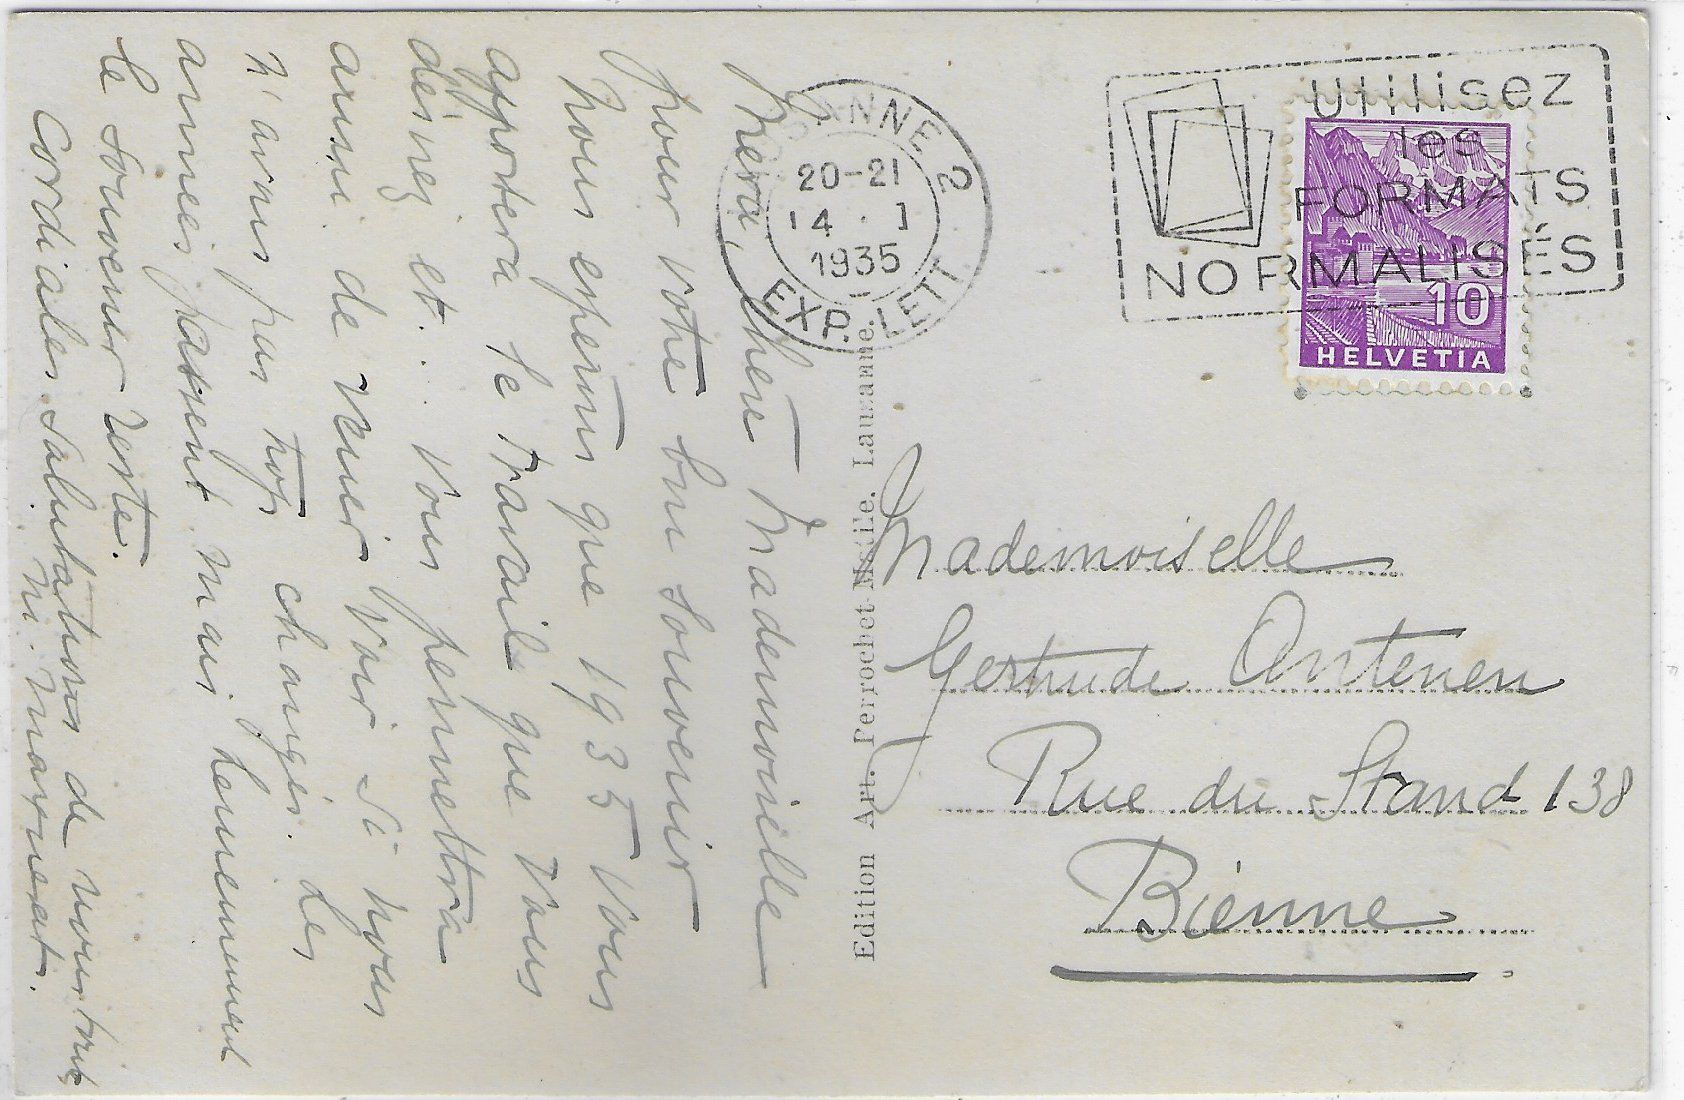 Merci, chère Mademoiselle
pour votre bon souvenir
Nous espérons que 1935 vous
apportera le travail que vous
désirez et... vous permettra
aussi de venir voir si nous
n'avons pas trop changés. Les
années passent mais heureusement
le souvenir reste.
Cordiales salutations de nous tous
M. Mavrerat.
Edition Art. Perrochet-Matile, Lausanne.
ANNE 2
20-21
14. I
1935
EXP. LETT.
Utilisez
les
FORMATS
NORMALISÉS
10
HELVETIA
Mademoiselle
Gertrude Antenen
Rue du Stand 138
Bienne